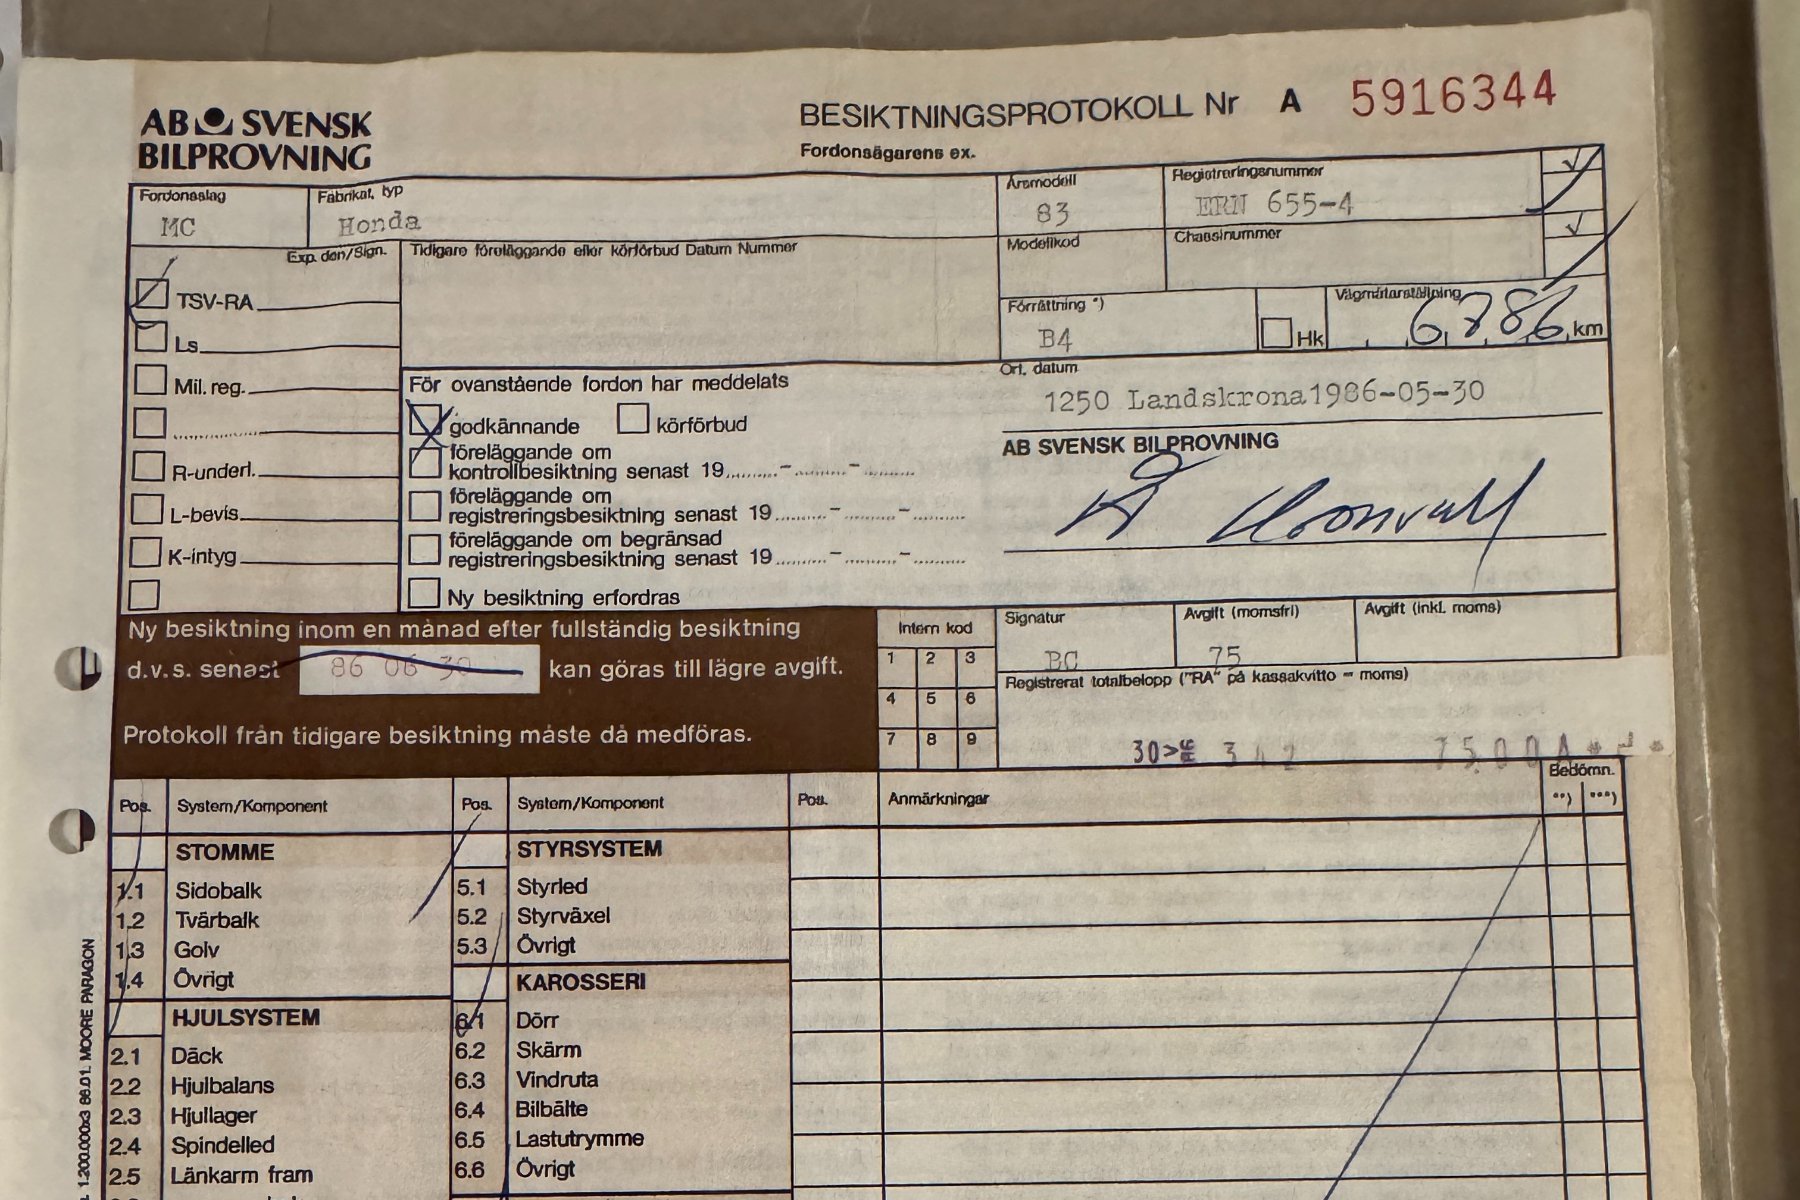 AB SVENSK
BILPROVNING
BESIKTNINGSPROTOKOLL Nr A 5916344
Fordonsägarens ex.
Fordonsslag
MC
Fabrikat, typ
Honda
Årsmodell
83
Registreringsnummer
ERN 655-4
Exp. den/Sign.
Tidigare föreläggande eller körförbud Datum Nummer
Modellkod
Chassinummer
TSV-RA
Ls
Mil. reg.
R-underl.
L-bevis
K-intyg
Förrättning *)
B4
Hk
Vägmätarställning
6786 km
För ovanstående fordon har meddelats
godkännande
körförbud
föreläggande om
kontrollbesiktning senast 19........-........-........
föreläggande om
registreringsbesiktning senast 19........-........-........
föreläggande om begränsad
registreringsbesiktning senast 19........-........-........
Ny besiktning erfordras
Ort, datum
1250 Landskrona1986-05-30
AB SVENSK BILPROVNING
Ny besiktning inom en månad efter fullständig besiktning
d.v.s. senast 86 06 30 kan göras till lägre avgift.
Protokoll från tidigare besiktning måste då medföras.
Intern kod
1 2 3
4 5 6
7 8 9
Signatur
BC
Avgift (momsfri)
75
Avgift (inkl. moms)
Registrerat totalbelopp ("RA" på kassakvitto = moms)
30> 342 75.00A
Pos. System/Komponent
STOMME
1.1 Sidobalk
1.2 Tvärbalk
1.3 Golv
1.4 Övrigt
HJULSYSTEM
2.1 Däck
2.2 Hjulbalans
2.3 Hjullager
2.4 Spindelled
2.5 Länkarm fram
Pos. System/Komponent
STYRSYSTEM
5.1 Styrled
5.2 Styrväxel
5.3 Övrigt
KAROSSERI
6.1 Dörr
6.2 Skärm
6.3 Vindruta
6.4 Bilbälte
6.5 Lastutrymme
6.6 Övrigt
Pos. Anmärkningar
Bedömn.
**) ***)
1.200.000x3 86.01. MOORE PARAGON